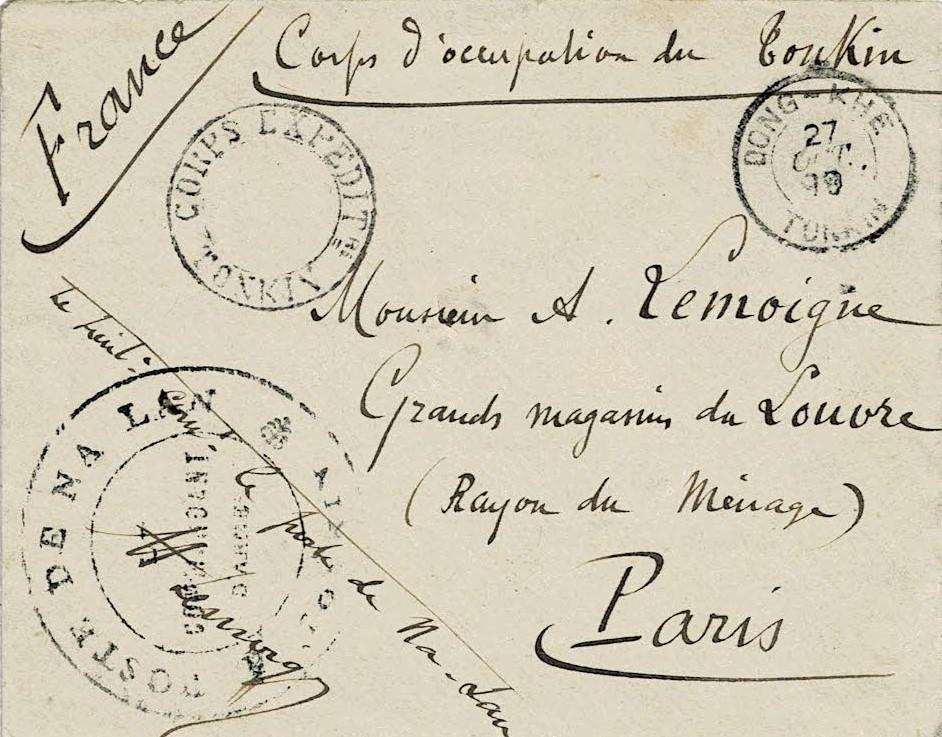 France
Corps d'occupation du Tonkin
CORPS EXPEDITRE
TONKIN
DONG-KHÉ
27
OCT.
TONKIN
Monsieur A. Lemoigne
Grands magasins du Louvre
(Rayon du Ménage)
Paris
Le Lieut.
Comt le poste de Na-Lan
POSTE DE NA LAN
COMMANDANT
D'ARMES